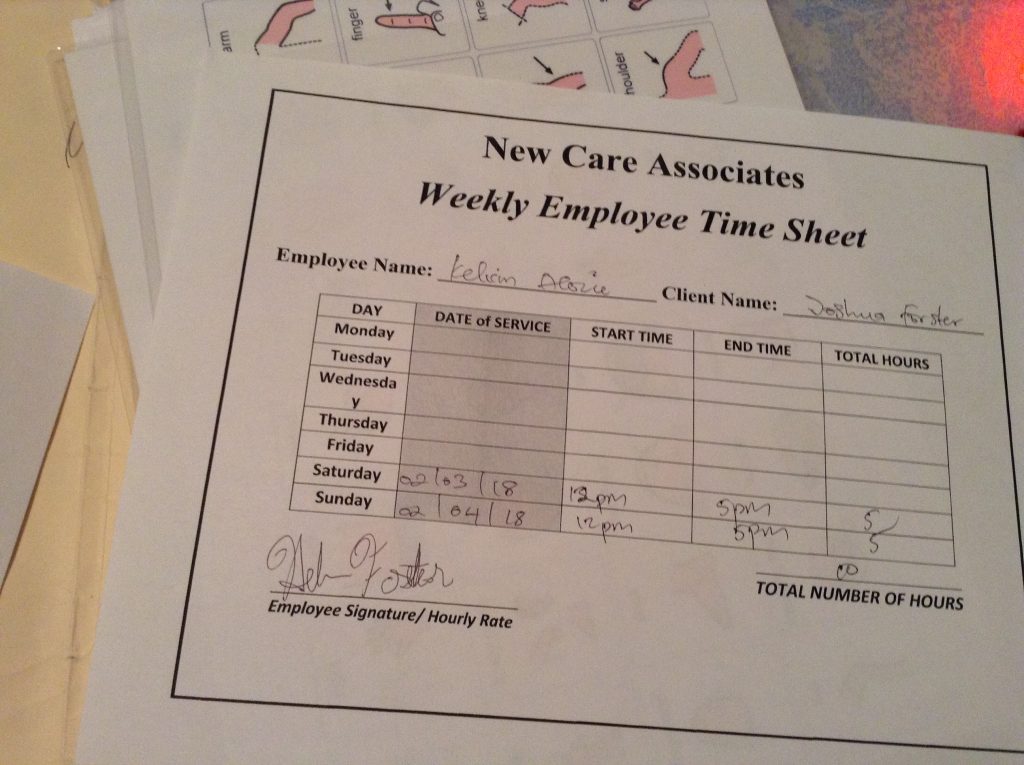 arm
finger
kne
houlder
New Care Associates
Weekly Employee Time Sheet
Employee Name: Kelvin Client Name: Joshua Forster
DAY DATE of SERVICE START TIME END TIME TOTAL HOURS
Monday
Tuesday
Wednesda
y
Thursday
Friday
Saturday 02/03/18 12pm 5pm 5
Sunday 02/04/18 12pm 5pm 5
Foster
Employee Signature/ Hourly Rate
TOTAL NUMBER OF HOURS